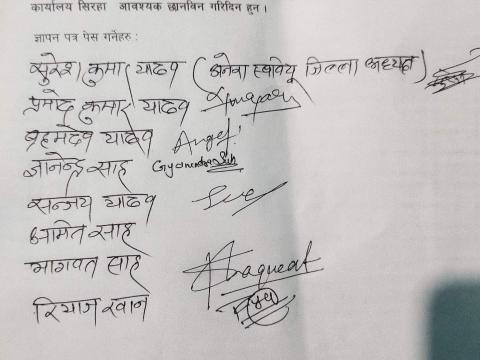 कार्यालय सिरहा आवश्यक छानविन गरिदिन हुन ।
ज्ञापन पत्र पेस गर्नेहरु :
सुरेश कुमार यादव (अनेरास्ववियू जिल्ला अध्यक्ष)
प्रमोद कुमार यादव
ब्रहमदेव यादव
ज्ञानेन्द्र साह Gyanendra Sah
सन्जय यादव
अमित साह
भागवत साह Bhagwat
रियाज खान